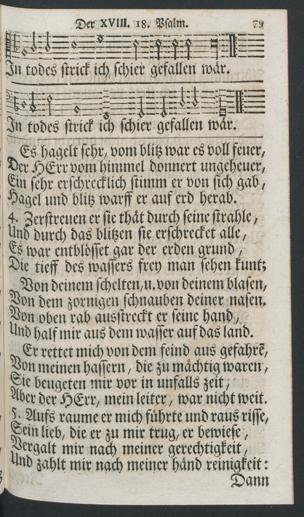 Der XVIII. 18. Psalm. 79
In todes strick ich schier gefallen wär.
In todes strick ich schier gefallen wär.
Es hagelt sehr, vom blitz war es voll feuer,
Der HErr vom himmel donnert ungeheuer,
Ein sehr erschrecklich stimm er von sich gab,
Hagel und blitz warff er auf erd herab.
4. Zerstreuen er sie thät durch seine strahle,
Und durch das blitzen sie erschrecket alle,
Es war entblösset gar der erden grund,
Die tieff des wassers frey man sehen kunt;
Von deinem schelten, u. von deinem blasen,
Von dem zornigen schnauben deiner nasen.
Von oben rab ausstreckt er seine hand,
Und half mir aus dem wasser auf das land.
Er rettet mich von dem feind aus gefahrē,
Von meinen hassern, die zu mächtig waren,
Sie beugeten mir vor in unfalls zeit,
Aber der HErr, mein leiter, war nicht weit.
5. Aufs raume er mich führte und raus risse,
Sein lieb, die er zu mir trug, er bewiese,
Vergalt mir nach meiner gerechtigkeit,
Und zahlt mir nach meiner händ reinigkeit:
Dann